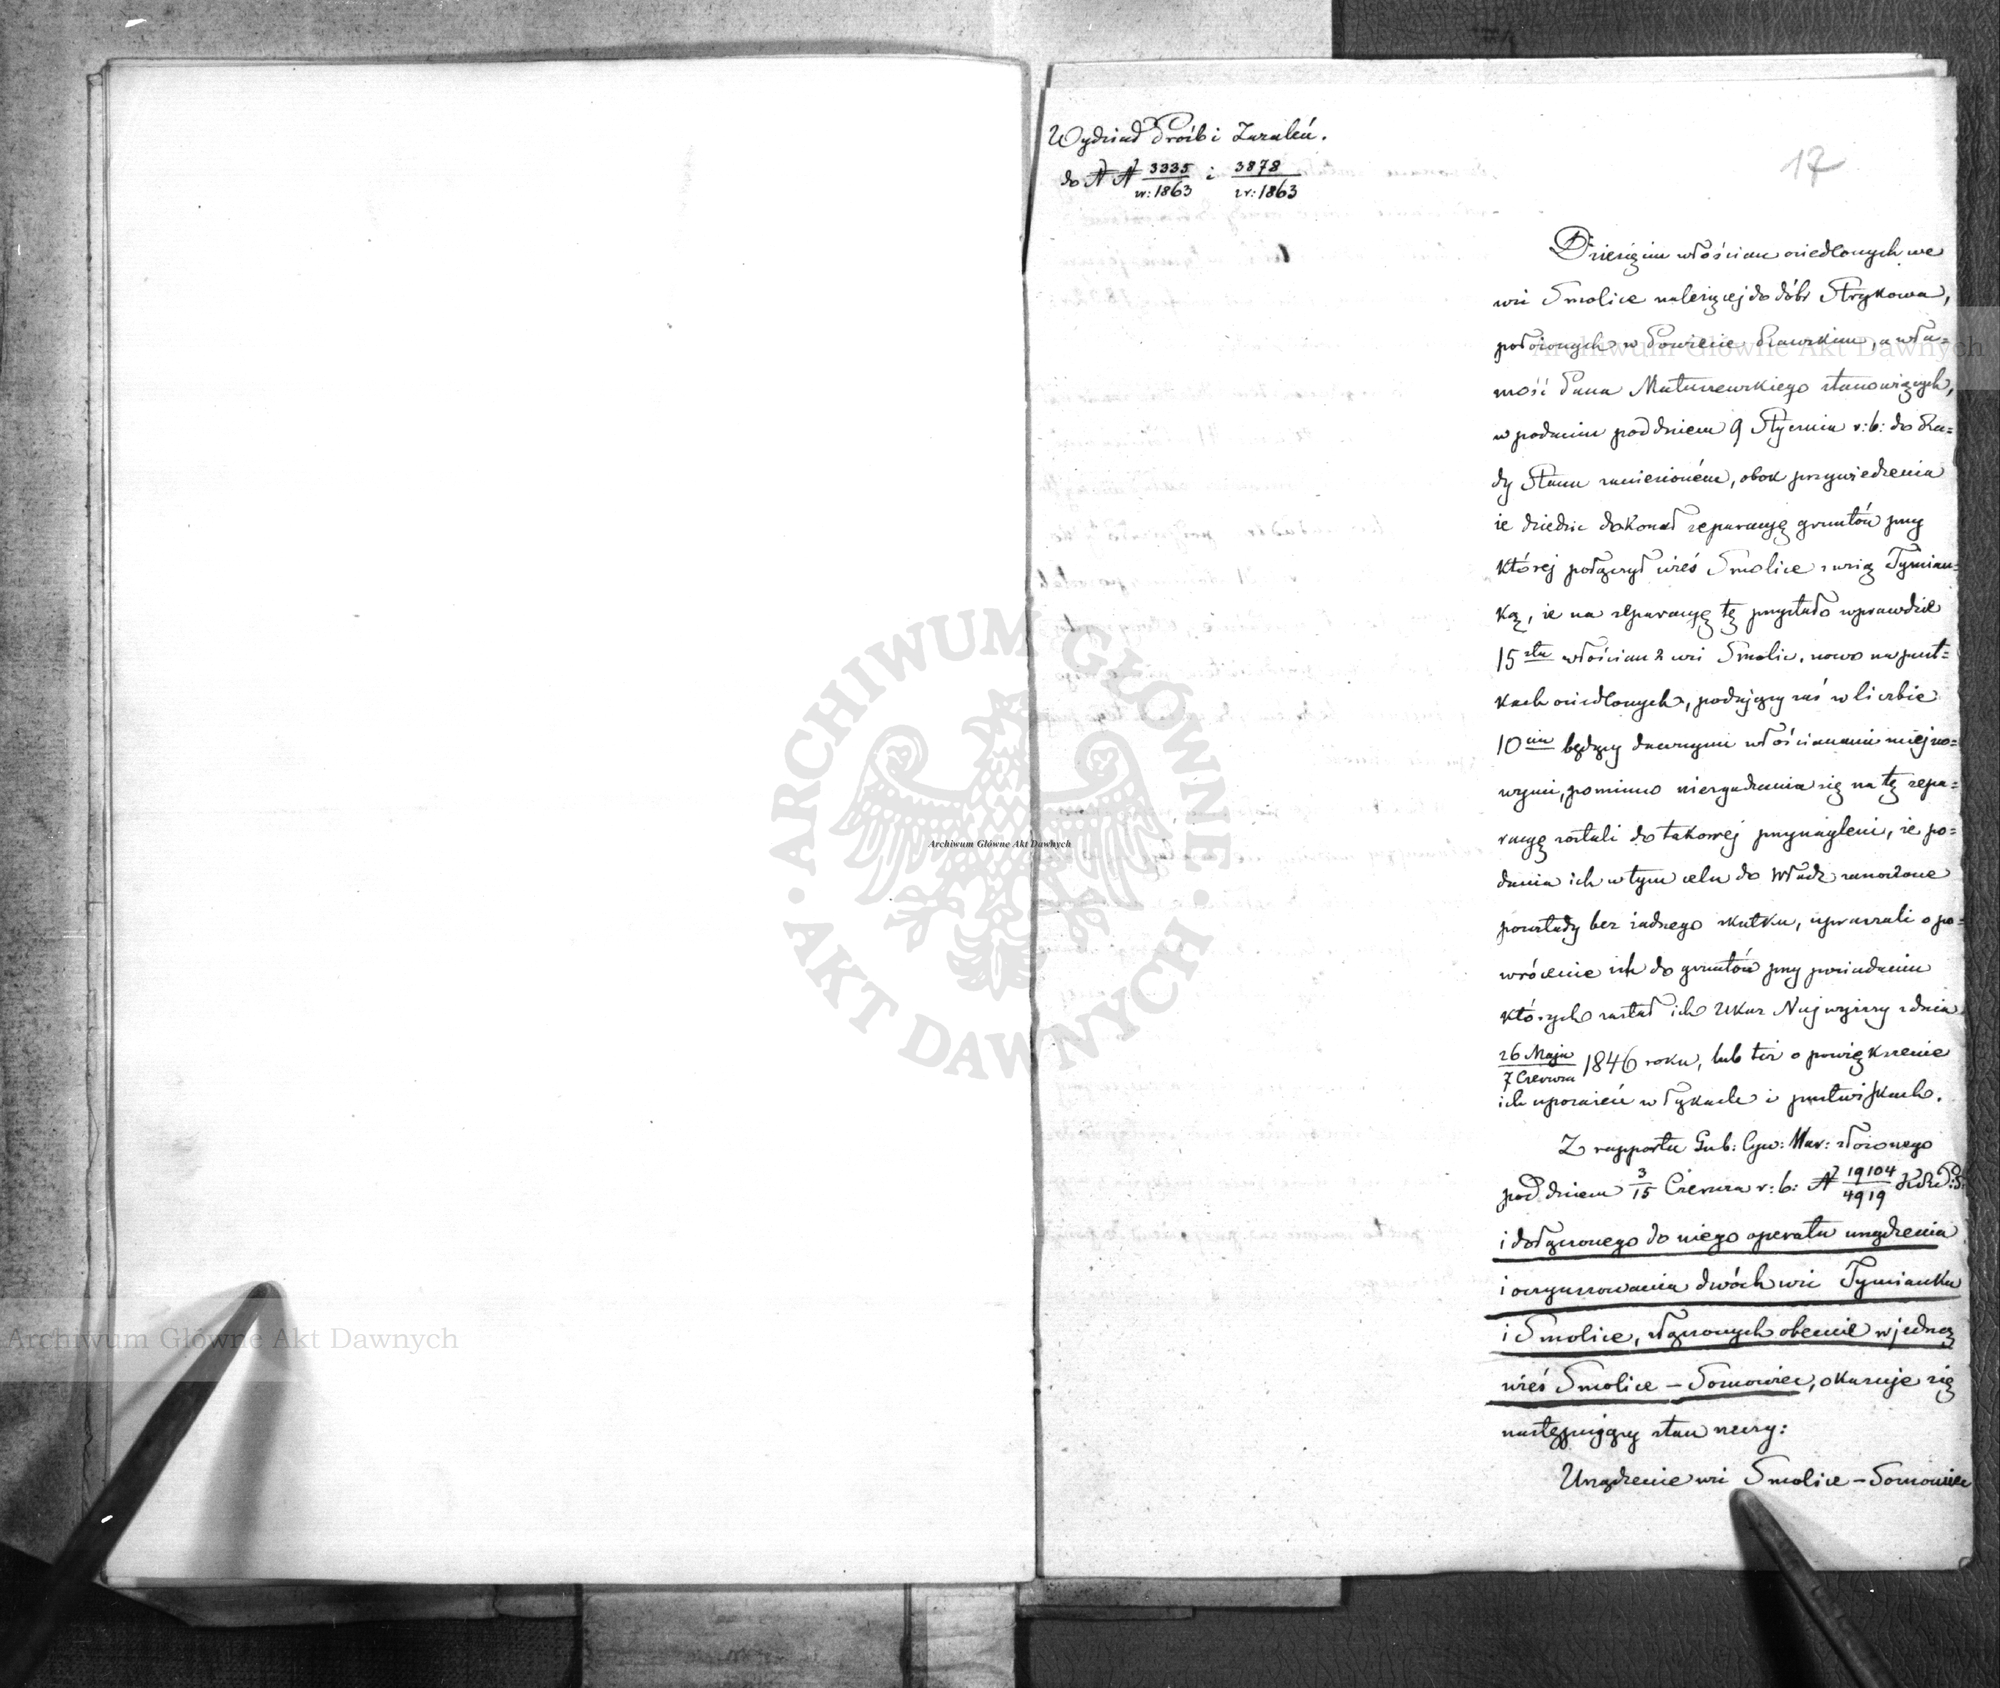 Wydział Próśb i Zażaleń.
do NN 3335/r: 1863 i 3878/r: 1863
17
Dziesięciu włościan osiedlonych we
wsi Smolice należącej do dóbr Strykowa,
położonych w Powiecie Rawskim, a wła=
sność Pana Matuszewskiego stanowiących,
w podaniu pod dniem 9 Stycznia r: b: do Ra=
dy Stanu zaniesioném, obok przywiedzenia
że dziedzic dokonał separacyę gruntów przy
której połączył wieś Smolice z wsią Tymian=
ką, że na separacyę tę przystało wprawdzie
15stu włościan z wsi Smolic, nowo na pust=
kach osiedlonych, podający zaś w liczbie
10ciu będący dawnymi włościanami miejsco=
wymi, pomimo niezgadzania się na tę sepa=
racyę zostali do takowej przynagleni, że po=
dania ich w tym celu do Władz zanoszone
pozostały bez żadnego skutku, upraszali o po=
wrócenie ich do gruntów przy posiadaniu
których zastał ich Ukaz Najwyższy z dnia
26 Maja/7 Czerwca 1846 roku, lub też o powiększenie
ich uposażeń w łąkach i pastwiskach.
Z rapportu Gub: Cyw: War: złożonego
pod dniem 3/15 Czerwca r: b: N 19104/4919
i dołączonego do niego operatu urządzenia
i oczynszowania dwóch wsi Tymianka
i Smolice, złączonych obecnie w jedną
wieś Smolice – Sosnowiec, okazuje się
następujący stan rzeczy:
Urządzenie wsi Smolice – Sosnowiec
Archiwum Główne Akt Dawnych
ARCHIWUM GŁÓWNE AKT DAWNYCH
Archiwum Główne Akt Dawnych
Archiwum Główne Akt Dawnych